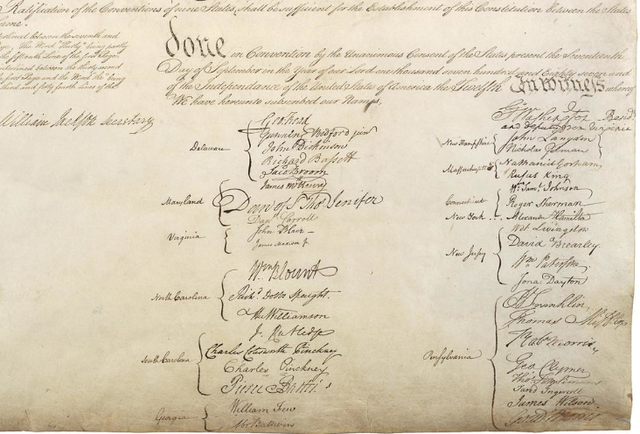 Ratification of the Conventions of nine States, shall be sufficient for the Establishment of this Constitution between the States
done in Convention by the Unanimous Consent of the States present the Seventeenth
Day of September in the Year of our Lord one thousand seven hundred and Eighty seven and
of the Independance of the United States of America the Twelfth In witness whereof
We have hereunto subscribed our Names,
William Jackson Secretary
Delaware
Geo: Read
Gunning Bedford jun
John Dickinson
Richard Bassett
Jaco: Broom
Maryland
James McHenry
Dan of St Thos Jenifer
Danl Carroll
Virginia
John Blair
James Madison Jr
North Carolina
Wm Blount
Richd Dobbs Spaight.
Hu Williamson
South Carolina
J. Rutledge
Charles Cotesworth Pinckney
Charles Pinckney
Pierce Butler.
Georgia
William Few
Abr Baldwin
Go Washington
and deputy from Virginia
New Hampshire
John Langdon
Nicholas Gilman
Massachusetts
Nathaniel Gorham
Rufus King
Connecticut
Wm Saml Johnson
Roger Sherman
New York
Alexander Hamilton
New Jersey
Wil: Livingston
David Brearley.
Wm Paterson.
Jona: Dayton
Pensylvania
B Franklin
Thomas Mifflin
Robt Morris
Geo. Clymer
Thos FitzSimons
Jared Ingersoll
James Wilson
Gouv Morris